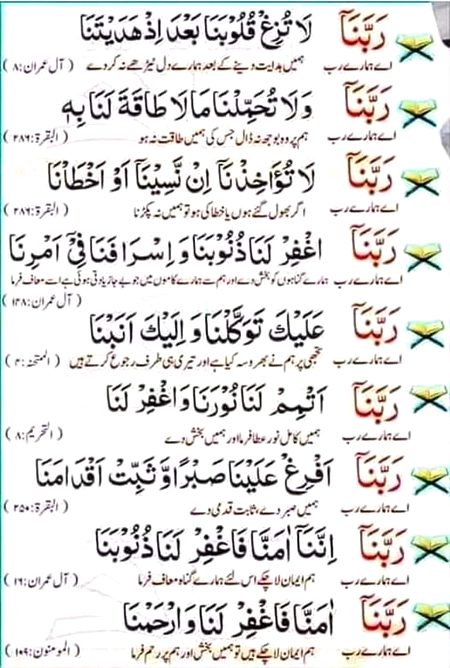 رَبَّنَآ لَا تُزِغْ قُلُوْبَنَا بَعْدَ اِذْ هَدَيْتَنَا
اے ہمارے رب ہمیں ہدایت دینے کے بعد ہمارے دل ٹیڑھے نہ کر دے (آل عمران:۸)
رَبَّنَآ وَلَا تُحَمِّلْنَا مَا لَا طَاقَةَ لَنَا بِهٖ
اے ہمارے رب ہم پر وہ بوجھ نہ ڈال جس کی ہمیں طاقت نہ ہو (البقرۃ:۲۸۶)
رَبَّنَآ لَا تُؤَاخِذْنَآ اِنْ نَّسِيْنَآ اَوْ اَخْطَاْنَا
اے ہمارے رب اگر بھول گئے ہوں یا خطا کی ہو تو ہمیں نہ پکڑنا (البقرۃ:۲۸۶)
رَبَّنَآ اغْفِرْ لَنَا ذُنُوْبَنَا وَ اِسْرَافَنَا فِىْٓ اَمْرِنَا
اے ہمارے رب ہمارے گناہوں کو بخش دے اور ہم سے ہمارے کاموں میں جو بے جا زیادتی ہوئی ہے اسے معاف فرما
(آل عمران:۱۴۸)
رَبَّنَآ عَلَيْكَ تَوَكَّلْنَا وَ اِلَيْكَ اَنَبْنَا
اے ہمارے رب تجھی پر ہم نے بھروسہ کیا ہے اور تیری ہی طرف رجوع کرتے ہیں (الممتحنہ:۴)
رَبَّنَآ اَتْمِمْ لَنَا نُوْرَنَا وَ اغْفِرْ لَنَا
اے ہمارے رب ہمیں کامل نور عطا فرما اور ہمیں بخش دے (التحریم:۸)
رَبَّنَآ اَفْرِغْ عَلَيْنَا صَبْرًا وَّ ثَبِّتْ اَقْدَامَنَا
اے ہمارے رب ہمیں صبر دے، ثابت قدمی دے (البقرۃ:۲۵۰)
رَبَّنَآ اِنَّنَآ اٰمَنَّا فَاغْفِرْ لَنَا ذُنُوْبَنَا
اے ہمارے رب ہم ایمان لا چکے اس لئے ہمارے گناہ معاف فرما (آل عمران:۱۶)
رَبَّنَآ اٰمَنَّا فَاغْفِرْ لَنَا وَ ارْحَمْنَا
اے ہمارے رب ہم ایمان لا چکے ہیں تو ہمیں بخش اور ہم پر رحم فرما (المومنون:۱۰۹)